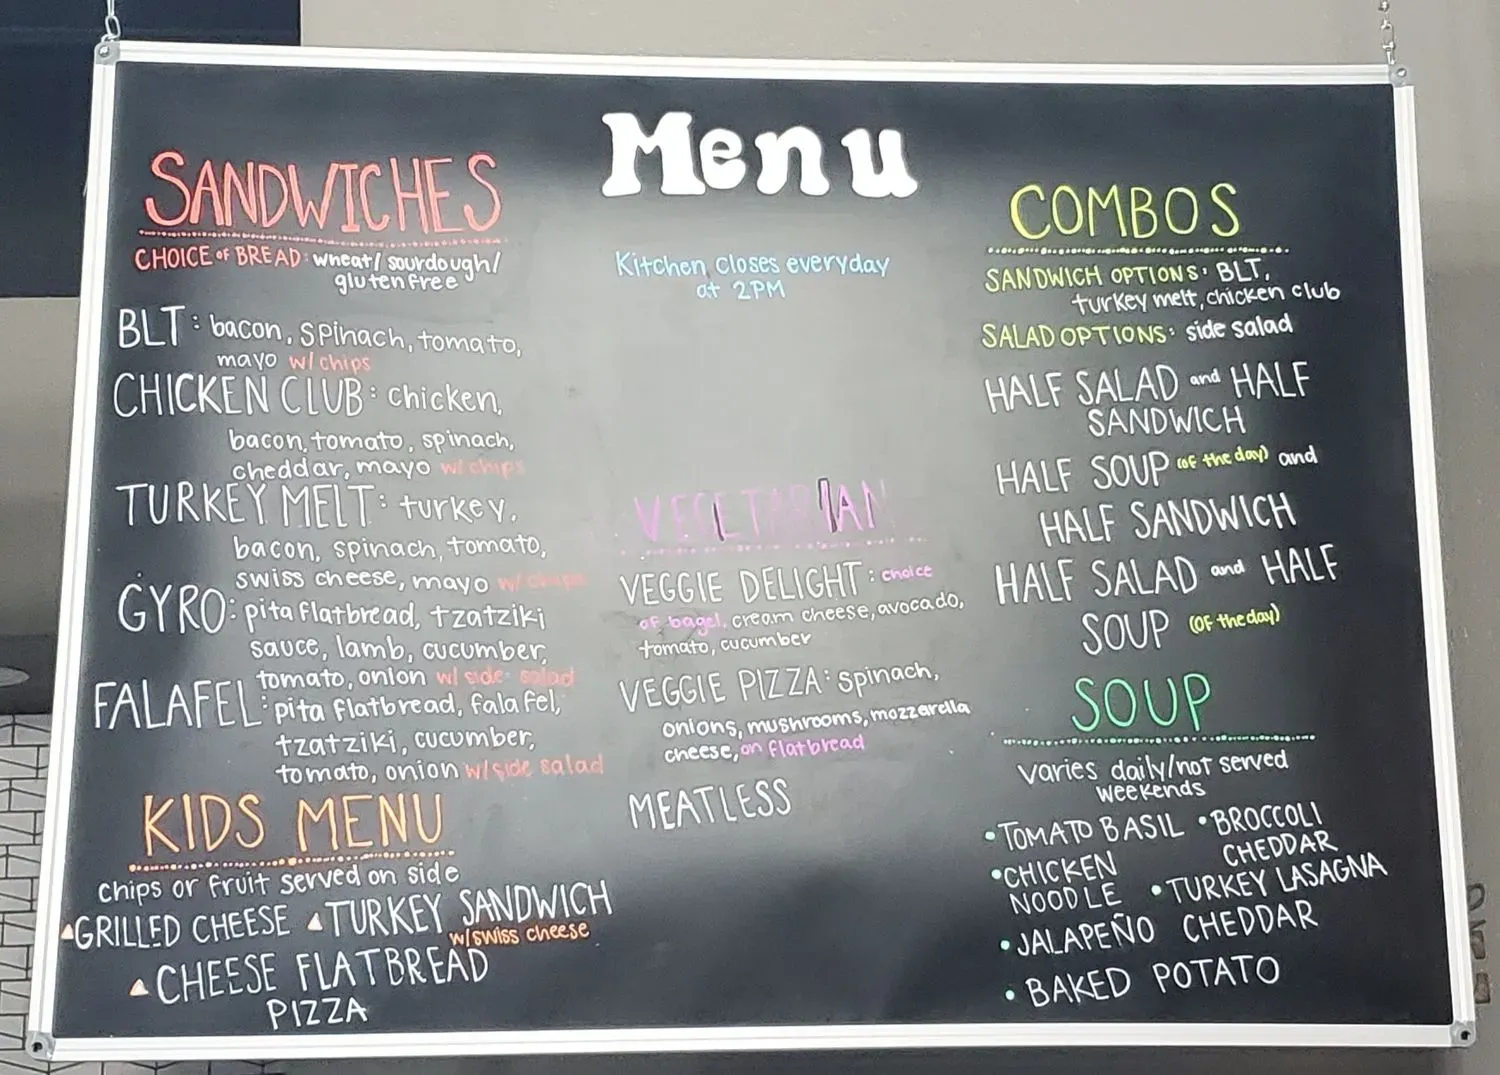 Menu
Kitchen closes everyday
at 2PM
SANDWICHES
CHOICE of BREAD: wheat/ sourdough/
gluten free
BLT: bacon, spinach, tomato,
mayo w/chips
CHICKEN CLUB: chicken,
bacon, tomato, spinach,
cheddar, mayo w/chips
TURKEY MELT: turkey,
bacon, spinach, tomato,
swiss cheese, mayo w/chips
GYRO: pita flatbread, tzatziki
sauce, lamb, cucumber,
tomato, onion w/side salad
FALAFEL: pita flatbread, falafel,
tzatziki, cucumber,
tomato, onion w/side salad
KIDS MENU
chips or fruit served on side
GRILLED CHEESE
TURKEY SANDWICH
w/swiss cheese
CHEESE FLATBREAD
PIZZA
VEGETARIAN
VEGGIE DELIGHT: choice
of bagel, cream cheese, avocado,
tomato, cucumber
VEGGIE PIZZA: spinach,
onions, mushrooms, mozzarella
cheese, on flatbread
MEATLESS
COMBOS
SANDWICH OPTIONS: BLT,
turkey melt, chicken club
SALAD OPTIONS: side salad
HALF SALAD and HALF
SANDWICH
HALF SOUP (of the day) and
HALF SANDWICH
HALF SALAD and HALF
SOUP (OF the day)
SOUP
varies daily/not served
weekends
• TOMATO BASIL
• BROCCOLI
CHEDDAR
• CHICKEN
NOODLE
• TURKEY LASAGNA
• JALAPEÑO CHEDDAR
• BAKED POTATO